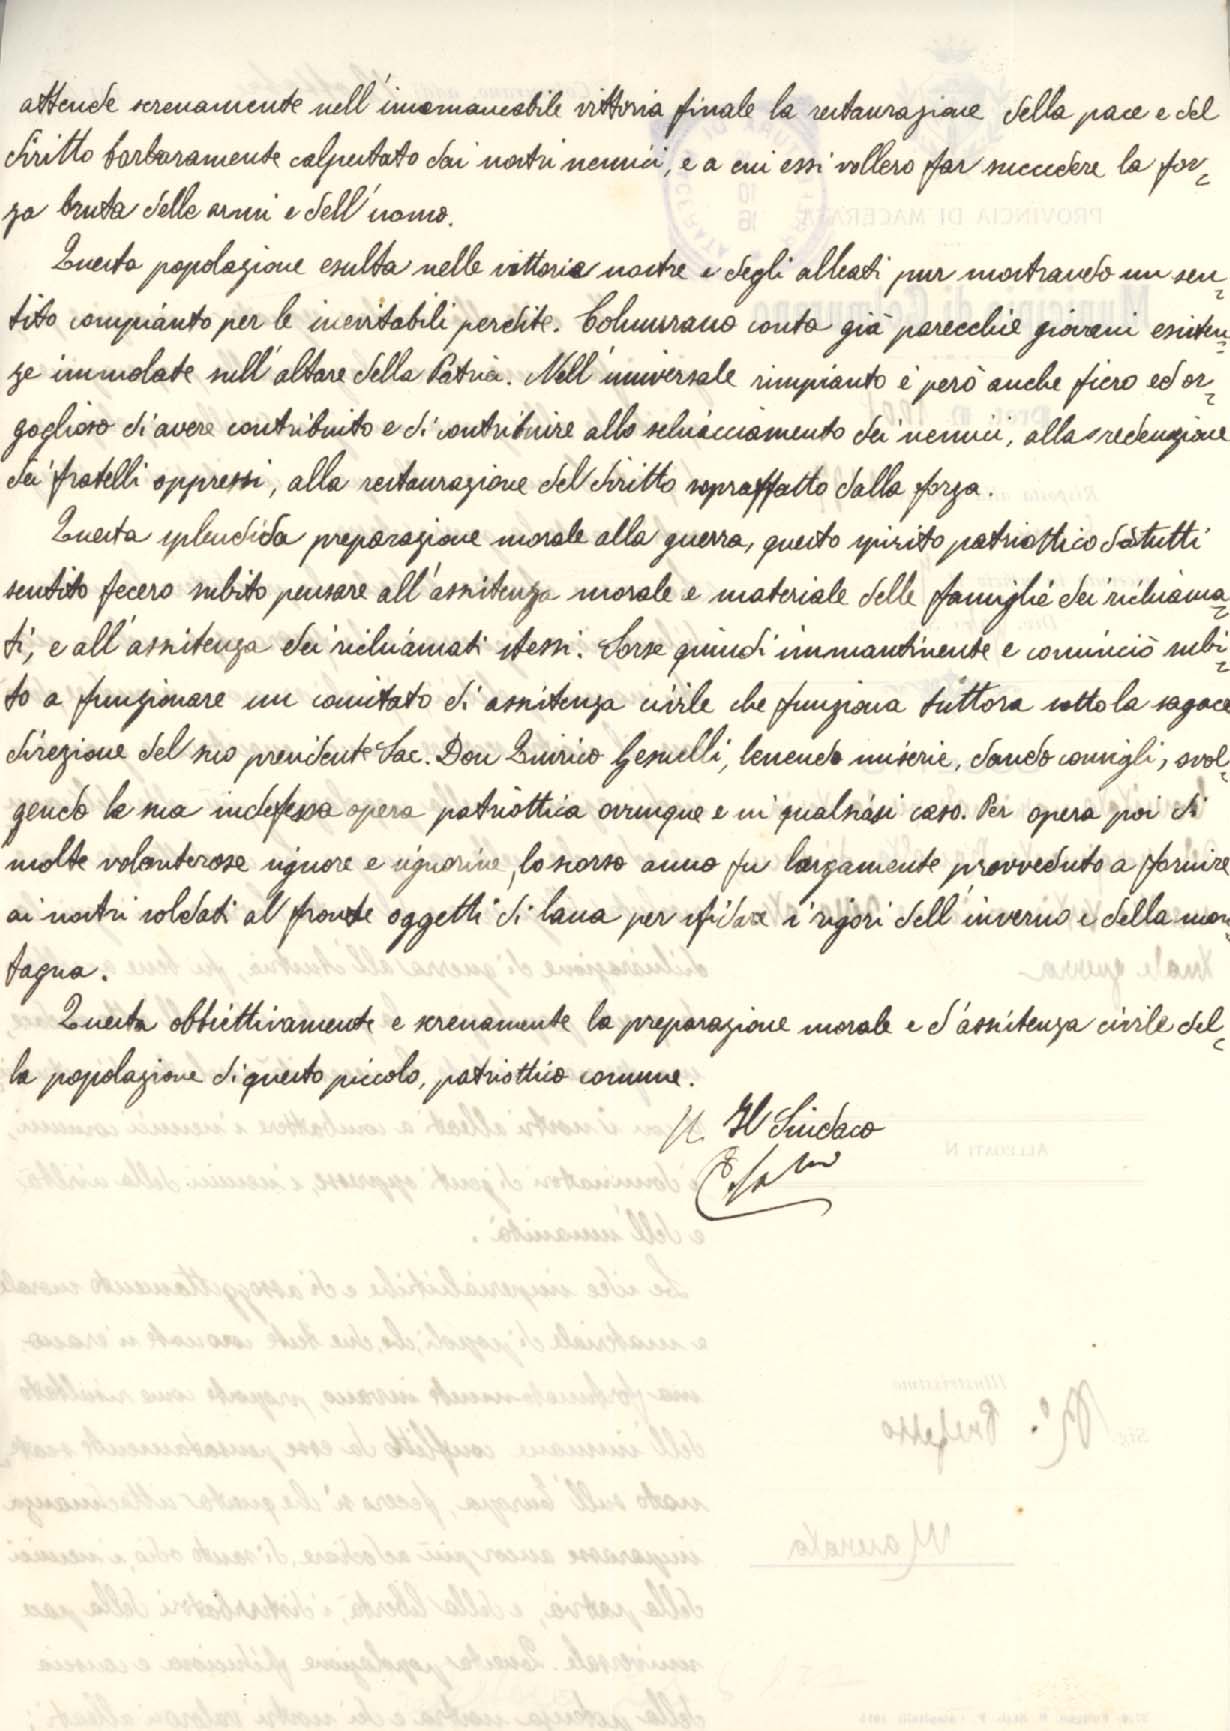 attende serenamente nell'immancabile vittoria finale la restaurazione della pace e del
diritto barbaramente calpestato dai nostri nemici, e a cui essi vollero far succedere la for-
za bruta delle armi e dell'uomo.
Questa popolazione esulta nelle vittorie nostre e degli alleati pur mostrando un sen-
tito compianto per le inevitabili perdite. Colmurano conta già parecchie giovani esisten-
ze immolate sull'altare della Patria. Nell'universale rimpianto è però anche fiero ed or-
goglioso di avere contribuito e di contribuire allo schiacciamento dei nemici, alla redenzione
dei fratelli oppressi, alla restaurazione del diritto sopraffatto dalla forza.
Questa splendida preparazione morale alla guerra, questo spirito patriottico da tutti
sentito fecero subito pensare all'assistenza morale e materiale delle famiglie dei richiama-
ti, e all'assistenza dei richiamati stessi. Sorse quindi immantinente e cominciò subi-
to a funzionare un comitato di assistenza civile che funziona tuttora sotto la sagace
direzione del suo presidente Sac. Don Quirico Gesuelli, lenendo miserie, dando consigli, svol-
gendo la sua indefessa opera patriottica ovunque e in qualsiasi caso. Per opera poi di
molte volonterose signore e signorine, lo scorso anno fu largamente provveduto a fornire
ai nostri soldati al fronte oggetti di lana per sfidare i rigori dell'inverno e della mon-
tagna.
Questa obbiettivamente e serenamente la preparazione morale e d'assistenza civile del-
la popolazione di questo piccolo, patriottico comune.
Il Sindaco